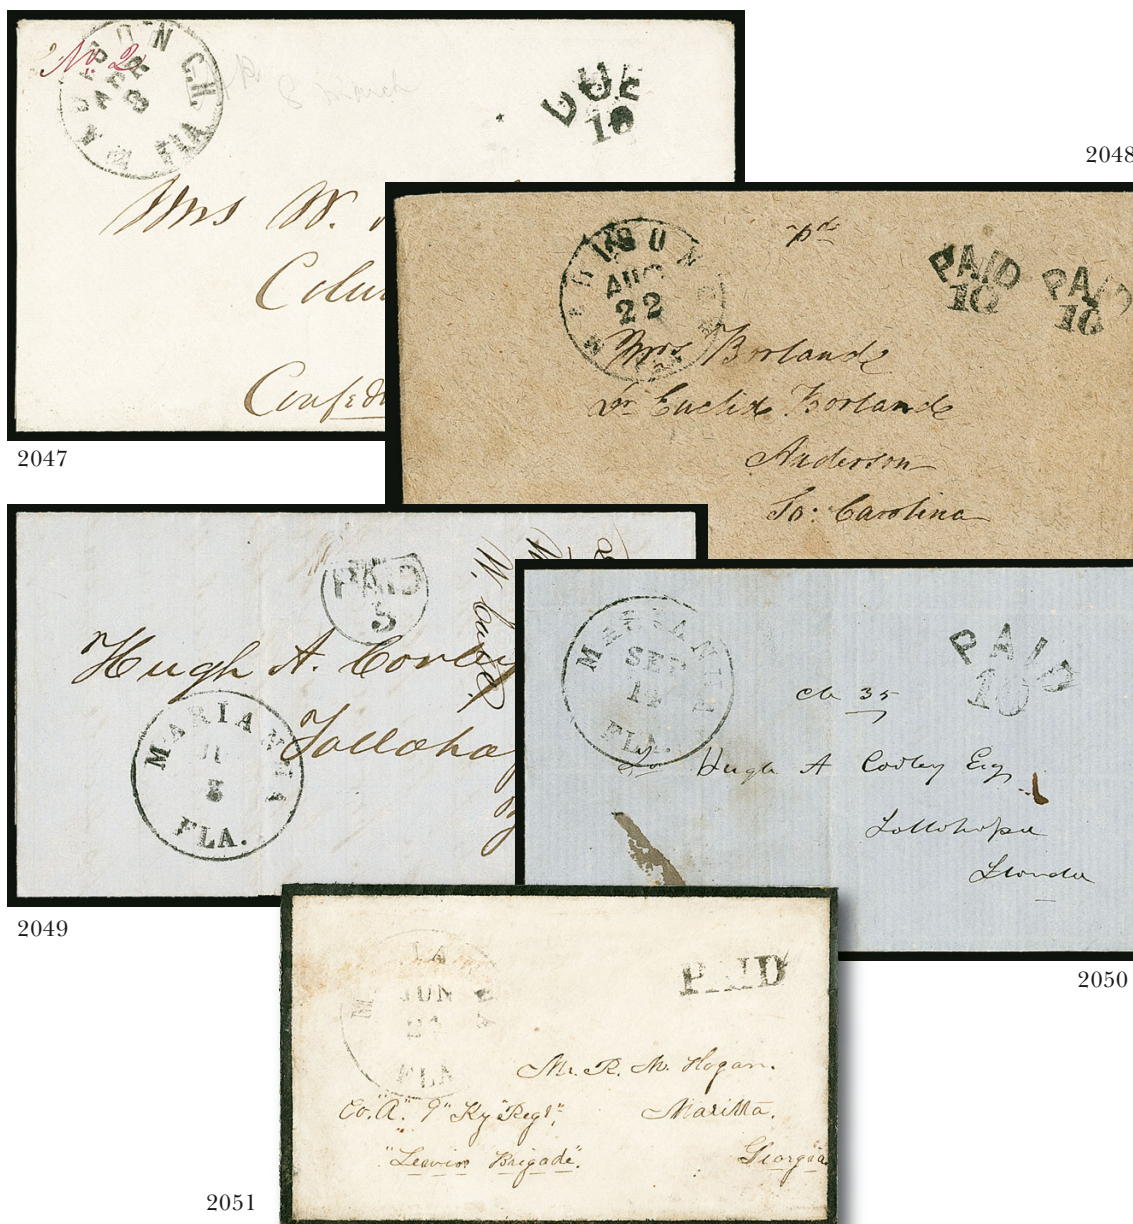 No. 2
MADISON C.H.
APR
3
FLA
8 March
DUE
10
Mrs W.
Colu
Confed
2047
2048
MADISON
AUG
22
pd
PAID
10
PAID
10
Mrs Borland
Dr Euclid Borland
Anderson
So: Carolina
PAID
5
Hugh A. Corley
Tallaha
W.
MARIANNA
5
FLA.
2049
MARIANNA
SEP
14
FLA.
PAID
10
ch 35
To Hugh A Corley Esq
Tallahassee
Florida
2050
JUN
FLA
PAID
Mr. R. M. Hogan.
Co. "A". 9" Ky "Regt".
Maritta.
"Lewis Brigade".
Georgia
2051